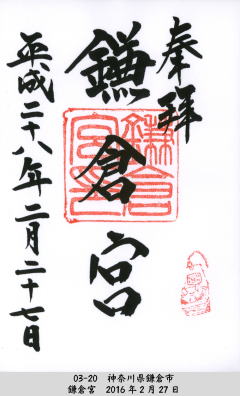 奉拝
鎌倉宮
鎌倉宮印
平成二十八年二月二十七日
03-20 神奈川県鎌倉市
鎌倉宮 2016年2月27日